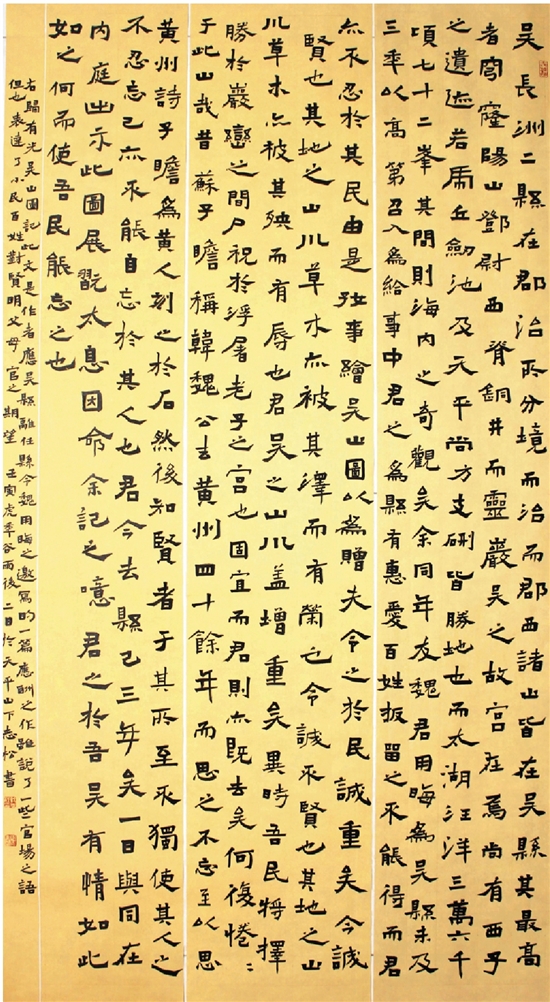 吴長洲二縣在郡治所分境而治而郡西諸山皆在吴縣其最高
者穹窿陽山鄧尉西脊銅井而靈巖吴之故宫在焉尚有西子
之遺迹若虎丘劍池及天平尚方支硎皆勝地也而太湖汪洋三萬六千
頃七十二峯其間則海内之奇觀矣余同年友魏君用晦爲吴縣未及
三年以高第召入爲給事中君之爲縣有惠愛百姓扳留之不能得而君
亦不忍於其民由是好事繪吴山圖以爲贈夫令之於民誠重矣令誠
賢也其地之山川草木亦被其澤而有榮也令誠不賢也其地之山
川草木亦被其殃而有辱也君吴之山川盖增重矣異時吾民将擇
勝於巖巒之間尸祝於浮屠老子之宫也固宜而君則亦既去矣何復惓惓
于此山哉昔蘇子瞻稱韓魏公去黄州四十餘年而思之不忘至以思
黄州詩子瞻爲黄人刻之於石然後知賢者于其所至不獨使其人之
不忍忘己亦不能自忘於其人也君今去縣已三年矣一日與同在
内庭出示此圖展翫太息因命余記之噫君之於吾吴有情如此
如之何而使吾民能忘之也
右歸有光吴山圖記此文是作者應吴縣離任縣令魏用晦之邀寫的一篇應酬之作雖説了一些官場之語
但也表達了小民百姓對賢明父母官之期望 壬寅虎年谷雨後二日於天平山下志松書